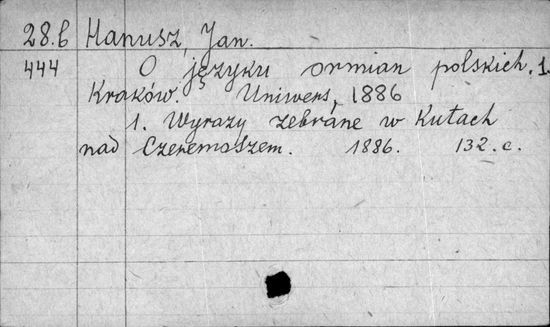 28.b Hanusz, Jan.
444 O języku ormian polskich. 1.
Kraków. Uniwers, 1886
1. Wyrazy zebrane w Kutach
nad Czeremoszem. 1886. 132.c.